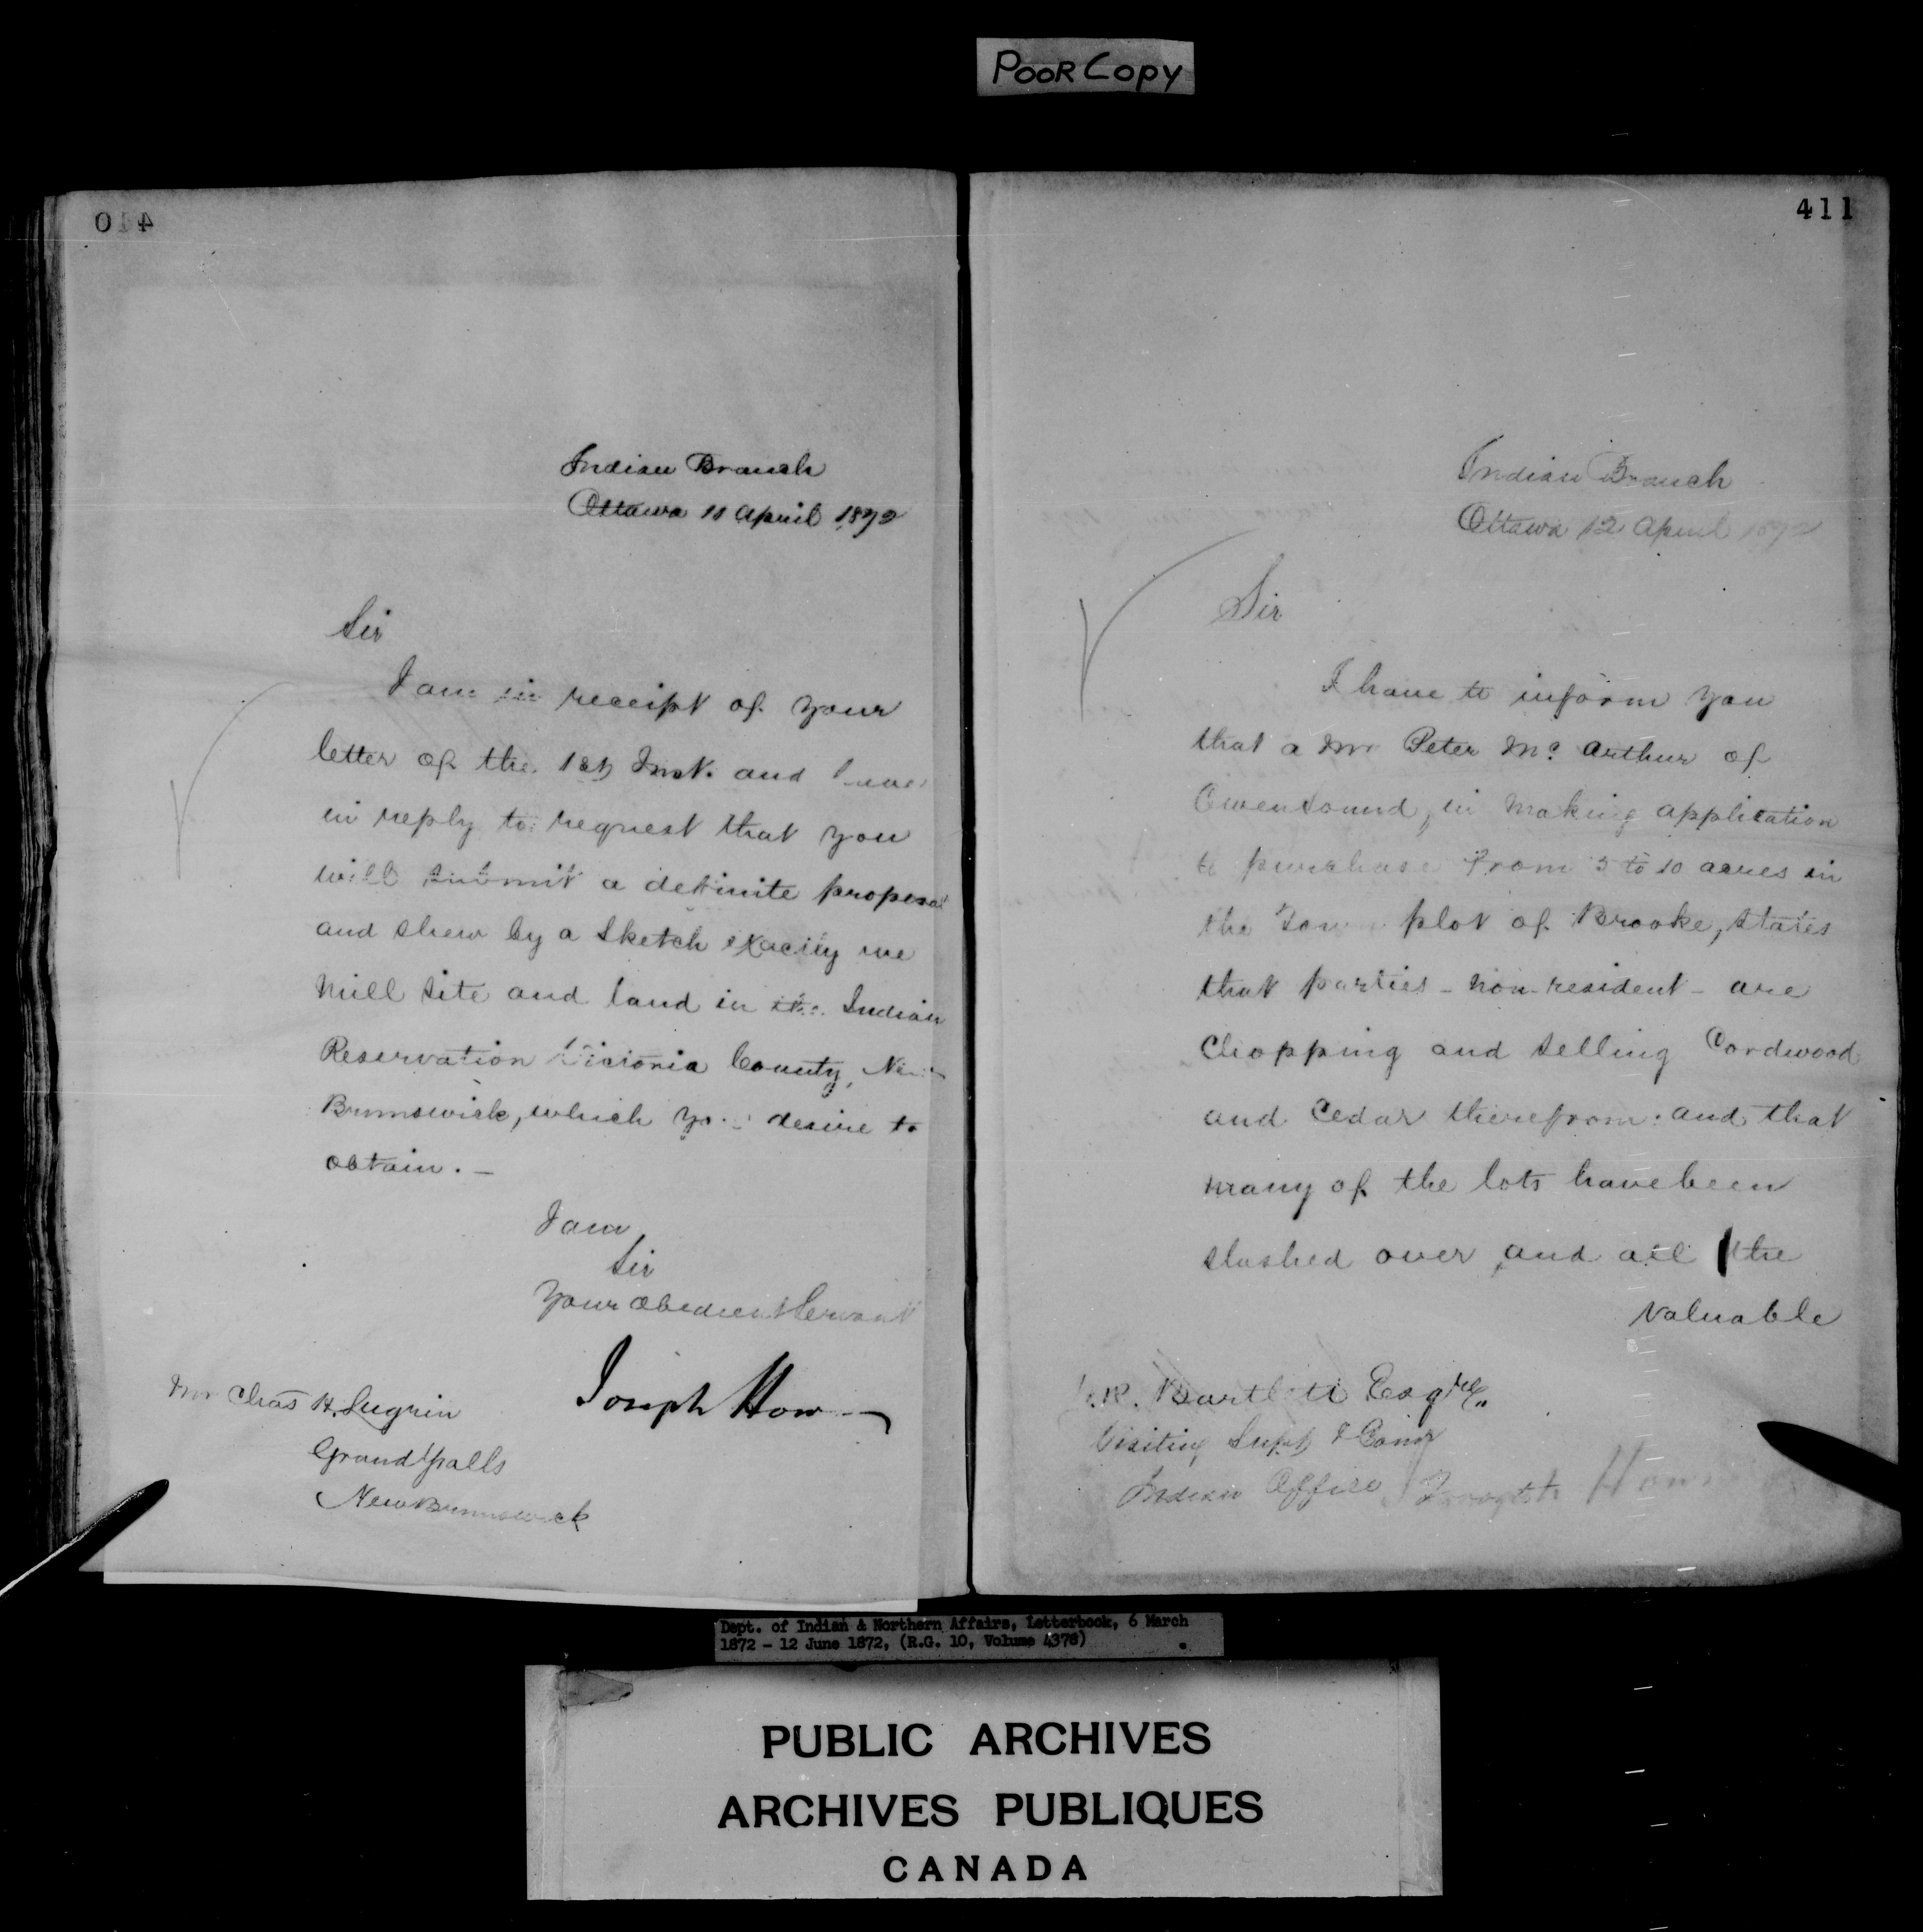 POOR COPY
410
Indian Branch
Ottawa 11 April 1872
Sir
I am in receipt of your
letter of the 1st Inst. and have
in reply to request that you
will submit a definite proposal
and shew by a sketch exactly the
Mill site and land in the Indian
Reservation Victoria County, New
Brunswick, which you desire to
obtain. —
I am
Sir
Your obedient Servant
Joseph Howe
Mr Chas H. Lugrin
Grand Falls
New Brunswick
411
Indian Branch
Ottawa 12 April 1872
Sir
I have to inform you
that a Mr Peter McArthur of
Owen Sound, in making application
to purchase from 5 to 10 acres in
the Town plot of Brooke, states
that parties - non-resident - are
Chopping and selling Cordwood
and Cedar therefrom: and that
many of the lots have been
slashed over and all the
valuable
R. Bartlett Esqre
Visiting Supt & Comr
Indian Office
Dept. of Indian & Northern Affairs, Letterbook, 6 March
1872 - 12 June 1872, (R.G. 10, Volume 4378)
PUBLIC ARCHIVES
ARCHIVES PUBLIQUES
CANADA